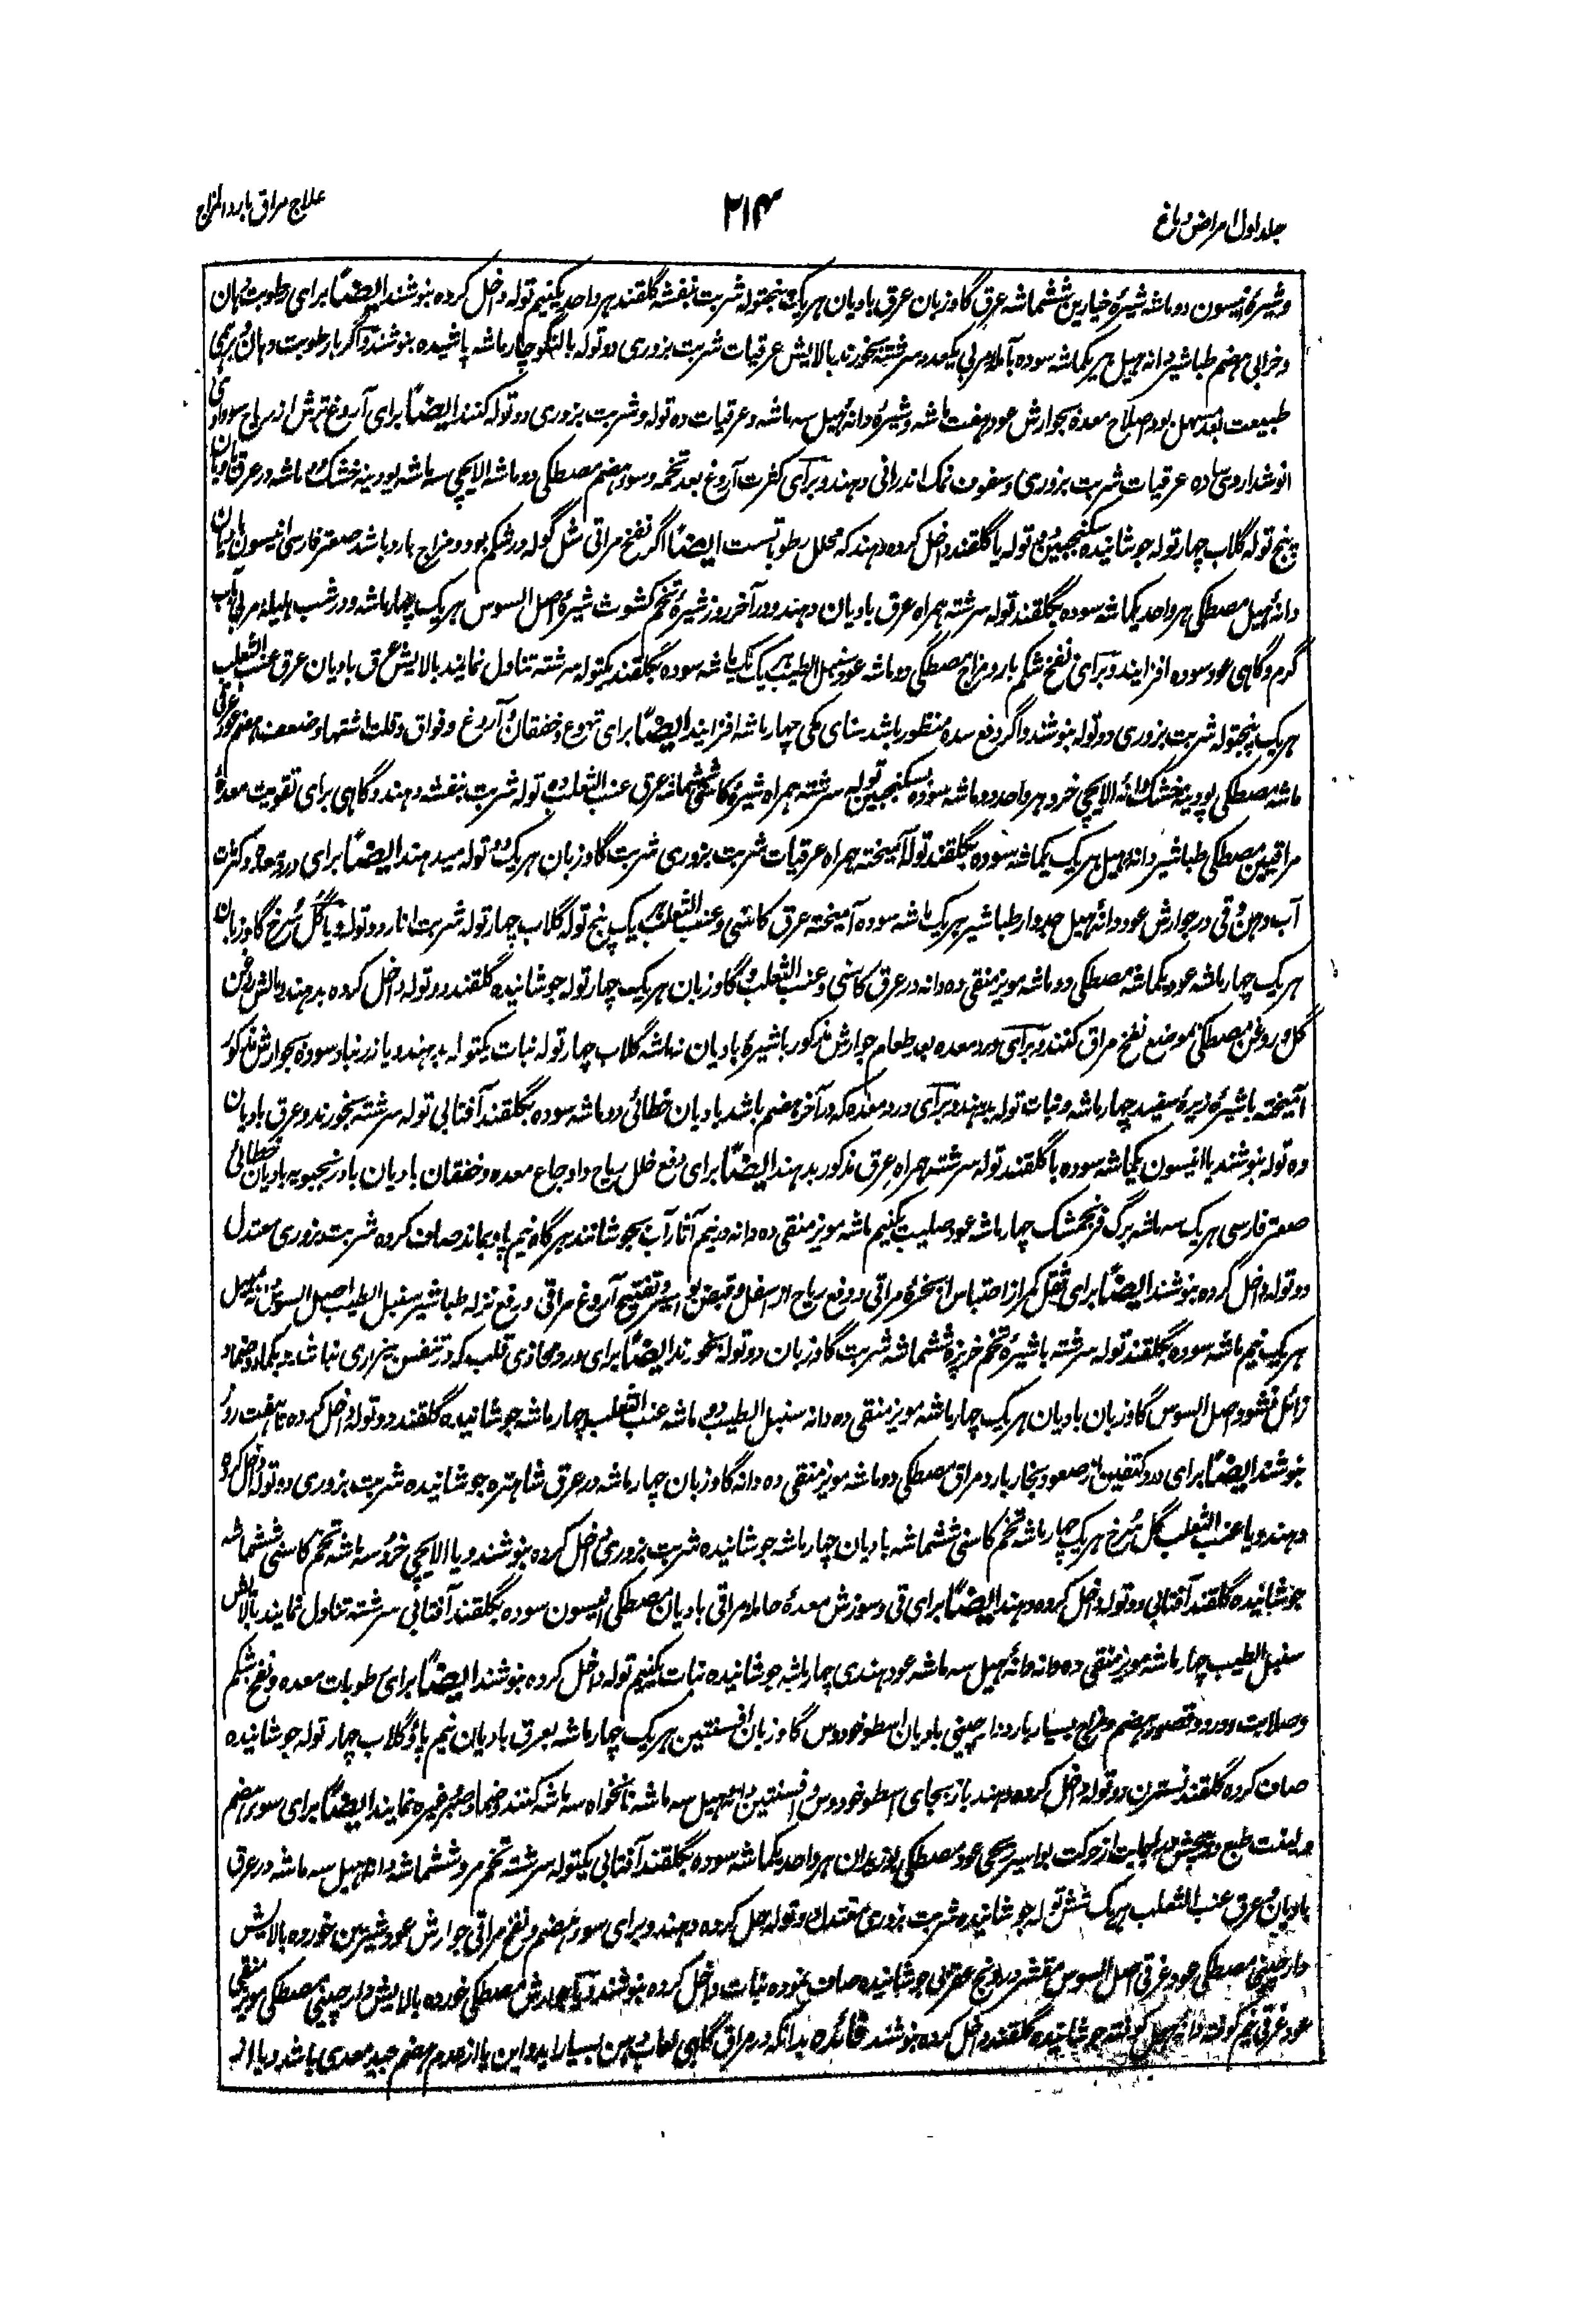 جلد اول امراض دماغ
۲۱۴
علاج مراق بارد المزاج
و شیرهٔ انیسون دو ماشه شیرهٔ خیارین ششماشه عرق گاوزبان عرق بادیان هر یک پنجتوله شربت بنفشه گلقند هر واحد یکنیم توله داخل کرده بنوشند ایضاً برای رطوبت دهان
و خرابی هضم طباشیر دانه هیل هر یکماشه سوده بآمله مربی یکعدد سرشته بخورند بالایش عرقیات شربت بزوری دو توله بالنگو چار ماشه پاشیده بنوشند و اگر با رطوبت دهان
طبیعت بعد مسهل بود اصلاح معده بجوارش عود هفت ماشه و شیرهٔ دانهٔ هیل سه ماشه و عرقیات ده توله و شربت بزوری دو توله کنند ایضاً برای آروغ ترش از ریاح سوداوی
انوشدارو ساده عرقیات شربت بزوری و سفوف نمک اندرانی دهند و برای کثرت آروغ بعد تخمه و سوء هضم مصطکی دو ماشه الایچی سه ماشه پودینه خشک ماشه در عرق بادیان
پنج توله گلاب چهار توله جوشانیده سکنجبین دو توله یا گلقند داخل کرده دهند که محلل رطوباتست ایضاً اگر نفخ مراقی مثل گوله در شکم بود و مزاج بارد باشد صعتر فارسی انیسون بادیان
دانهٔ هیل مصطکی هر واحد یکماشه سوده بگلقند توله سرشته همراه عرق بادیان دهند و در آخر روز شیرهٔ تخم کشوث شیرهٔ اصل السوس هر یک چهار ماشه و در شب هلیلهٔ مربی بآب
گرم و گاهی عود سوده افزایند و برای نفخ شکم بارد مزاج مصطکی دو ماشه عود سنبل الطیب هر یک یک ماشه سوده بگلقند یکتوله سرشته تناول نمایند بالایش عرق بادیان عرق عنب الثعلب
هر یک پنجتوله شربت بزوری دو توله بنوشند و اگر دفع سده منظور باشد سنای مکی چهار ماشه افزایند ایضاً برای تهوع و خفقان و آروغ و فواق و قلت اشتها و ضعف هضم عود غرقی
ماشه مصطکی پودینه خشک دانهٔ الایچی خرد هر واحد دو ماشه سوده بسکنجبین توله سرشته همراه شیرهٔ کاسنی ششماشه عرق عنب الثعلب ده توله شربت بنفشه دهند و گاهی برای تقویت معدهٔ
مراقیین مصطکی طباشیر دانه هیل هر یک یکماشه سوده بگلقند توله آمیخته همراه عرقیات شربت بزوری شربت گاوزبان هر یک دو توله میدهند ایضاً برای درد معده و کثرت
آب دهن و قی در جوارش عود دانهٔ هیل جدوار طباشیر هر یک ماشه سوده آمیخته عرق کاسنی و عنب الثعلب هر یک پنج توله گلاب چهار توله شربت انار دو توله و یا گل سرخ گاوزبان
هر یک چهار ماشه عود یکماشه مصطکی دو ماشه مویز منقی ده دانه در عرق کاسنی و عنب الثعلب و گاوزبان هر یک چهار توله جوشانیده گلقند دو توله داخل کرده بدهند و مالش روغن
گل و روغن مصطکی بموضع نفخ مراق کنند و برای درد معده بعد طعام جوارش مذکور با شیرهٔ بادیان نه ماشه گلاب چهار توله نبات یکتوله بدهند و یا زرنباد سوده بجوارش مذکور
آمیخته با شیرهٔ زیرهٔ سفید چهار ماشه و نبات توله بدهند و برای درد معده که در آخر هضم باشد بادیان خطائی دو ماشه سوده بگلقند آفتابی توله سرشته بخورند و عرق بادیان
ده توله بنوشند یا انیسون یکماشه سوده با گلقند توله سرشته همراه عرق مذکور بدهند ایضاً برای دفع خلل ریاح و اوجاع معده و خفقان بادیان بادرنجبویه بادیان خطائی
صعتر فارسی هر یک سه ماشه برگ فرنجمشک چهار ماشه عود صلیب یکنیم ماشه مویز منقی ده دانه در نیم آثار آب بجوشانند هرگاه نیم پاؤ بماند صاف کرده شربت بزوری معتدل
دو توله داخل کرده بنوشند ایضاً برای ثقل کمر از احتباس ابخرهٔ مراقی و دفع ریاح از اسفل و قبض بواسیر و تفتیح آروغ مراقی و رفع نزله طباشیر سنبل الطیب اصل السوس دانه هیل
هر یک نیم ماشه سوده بگلقند توله سرشته با شیرهٔ تخم خرپزه ششماشه شربت گاوزبان دو توله بخورند ایضاً برای درد محاذی قلب که در تنفس بیقراری نباشد و بکماد و ضماد
زائل نشود اصل السوس گاوزبان بادیان هر یک چهار ماشه مویز منقی ده دانه سنبل الطیب دو ماشه عنب الثعلب چهار ماشه جوشانیده گلقند دو توله داخل کرده تا هفت روز
بنوشند ایضاً برای درد کتفین از صعود بخار بارد مراق مصطکی دو ماشه مویز منقی ده دانه گاوزبان چهار ماشه در عرق شاهتره جوشانیده شربت بزوری دو توله داخل کرده
دهند و یا عنب الثعلب گل سرخ هر یک چهار ماشه تخم کاسنی ششماشه بادیان چهار ماشه جوشانیده شربت بزوری داخل کرده بنوشند و یا الایچی خرد سه ماشه تخم کاسنی ششماشه
جوشانیده گلقند آفتابی دو توله داخل کرده دهند ایضاً برای قی و سوزش معدهٔ حاملهٔ مراقی بادیان مصطکی انیسون سوده بگلقند آفتابی سرشته تناول نمایند بالایش
سنبل الطیب چهار ماشه مویز منقی ده دانه دانهٔ هیل سه ماشه عود هندی چهار ماشه جوشانیده نبات یکنیم توله داخل کرده بنوشند ایضاً برای رطوبات معده و نفخ شکم
و صلابت و درد و قصور هضم و مزاج بسیار بارد دارچینی بادیان اسطوخودوس گاوزبان افسنتین هر یک چهار ماشه بعرق بادیان نیم پاؤ گلاب چهار توله جوشانیده
صاف کرده گلقند نسترن دو توله داخل کرده دهند باز بجای اسطوخودوس و افسنتین دانهٔ هیل سه ماشه نانخواه سه ماشه کنند و ضماد صبر وغیره نمایند ایضاً برای سوء هضم
و لینت طبع و پیچش از حرکت بواسیر ریحی عود مصطکی هر واحد یکماشه سوده بگلقند آفتابی یکتوله سرشته تخم مرو ششماشه دانه هیل سه ماشه در عرق
بادیان عرق عنب الثعلب هر یک شش توله جوشانیده شربت بزوری معتدل دو توله حل کرده دهند و برای سوء هضم و نفخ مراقی جوارش عود شیرین خورده بالایش
دارچینی مصطکی عود غرقی اصل السوس مقشر درونج عقربی جوشانیده صاف نموده نبات داخل کرده بنوشند و یا جوارش مصطکی خورده بالایش دارچینی مصطکی مویز منقی
عود غرقی نیم کوفته دانه هیل کوفته جوشانیده گلقند داخل کرده بنوشند فائده بدانکه در مراق گاهی لعاب دهن بسیار آید و این یا از عدم هضم جید معدی باشد و یا از